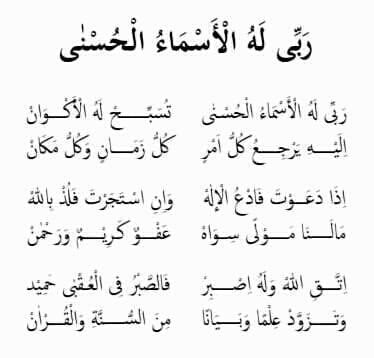 رَبِّى لَهُ الْأَسْمَاءُ الْحُسْنٰى
رَبِّى لَهُ الْأَسْمَاءُ الْحُسْنٰى تُسَبِّحْ لَهُ الْأَكْوَانْ
اِلَيْهِ يَرْجِعُ كُلُّ اَمْرٍ كُلُّ زَمَانٍ وَكُلُّ مَكَانْ
اِذَا دَعَوْتَ فَادْعُ الْاِلٰهْ وَاِنِ اسْتَجَرْتَ فَلُذْ بِاللهْ
مَالَنَا مَوْلًى سِوَاهْ عَفْوٌ كَرِيْمٌ وَرَحْمٰنْ
اِتَّقِ اللهْ وَلَهُ اِصْبِرْ فَالصَّبْرُ فِى الْعُقْبٰى حَمِيْد
وَتَزَوَّدْ عِلْمًا وَبَيَانًا مِنَ السُّنَّةِ وَالْقُرْاٰنْ